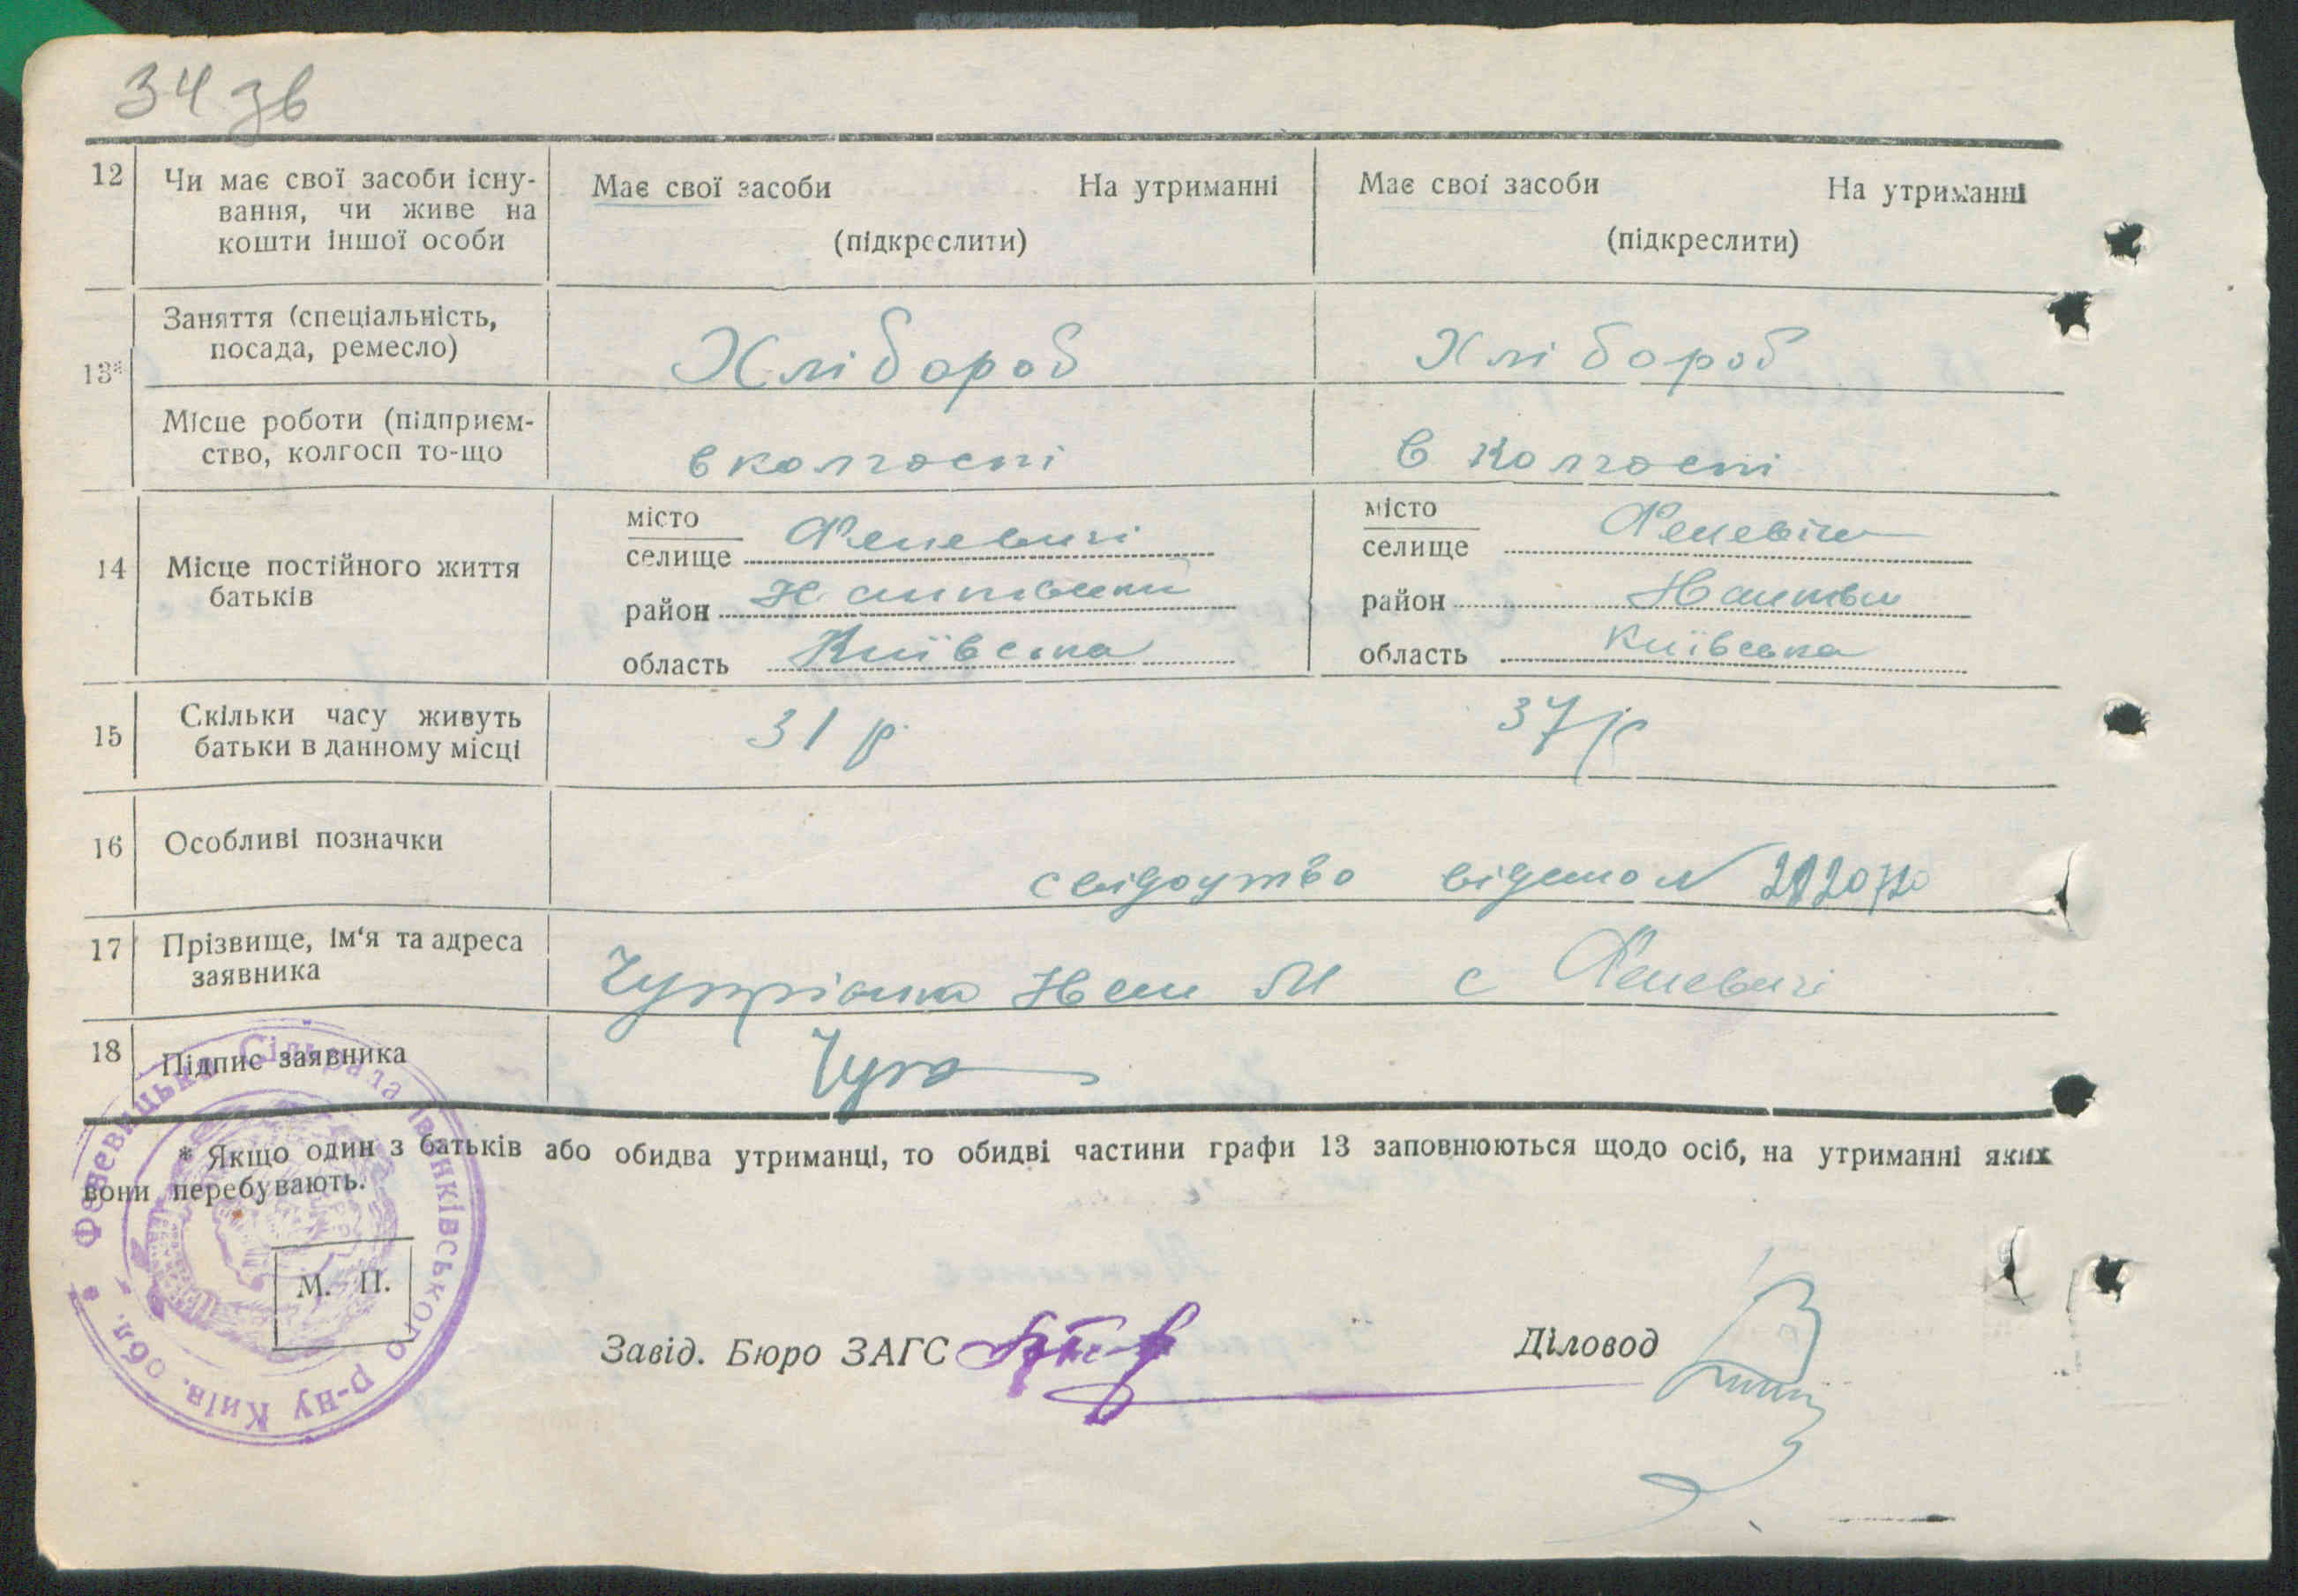 34 зв
12 Чи має свої засоби існу- Має свої засоби На утриманні Має свої засоби На утриманні
вання, чи живе на
кошти іншої особи (підкреслити) (підкреслити)
Заняття (спеціальність,
посада, ремесло) Хлібороб Хлібороб
13*
Місце роботи (підприєм-
ство, колгосп то-що в колгоспі в колгоспі
14 Місце постійного життя
батьків
місто місто
селище Феневичі селище Феневичі
район район
область Київська область Київська
15 Скільки часу живуть
батьки в данному місці 31 р. 37 р
16 Особливі позначки
свідоцтво видано N
17 Прізвище, ім'я та адреса
заявника
М с Феневичі
18 Підпис заявника
* Якщо один з батьків або обидва утриманці, то обидві частини графи 13 заповнюються щодо осіб, на утриманні яких
вони перебувають.
Феневицька Сільрада Іванківського р-ну Київ. обл.
М. П.
Завід. Бюро ЗАГС Діловод